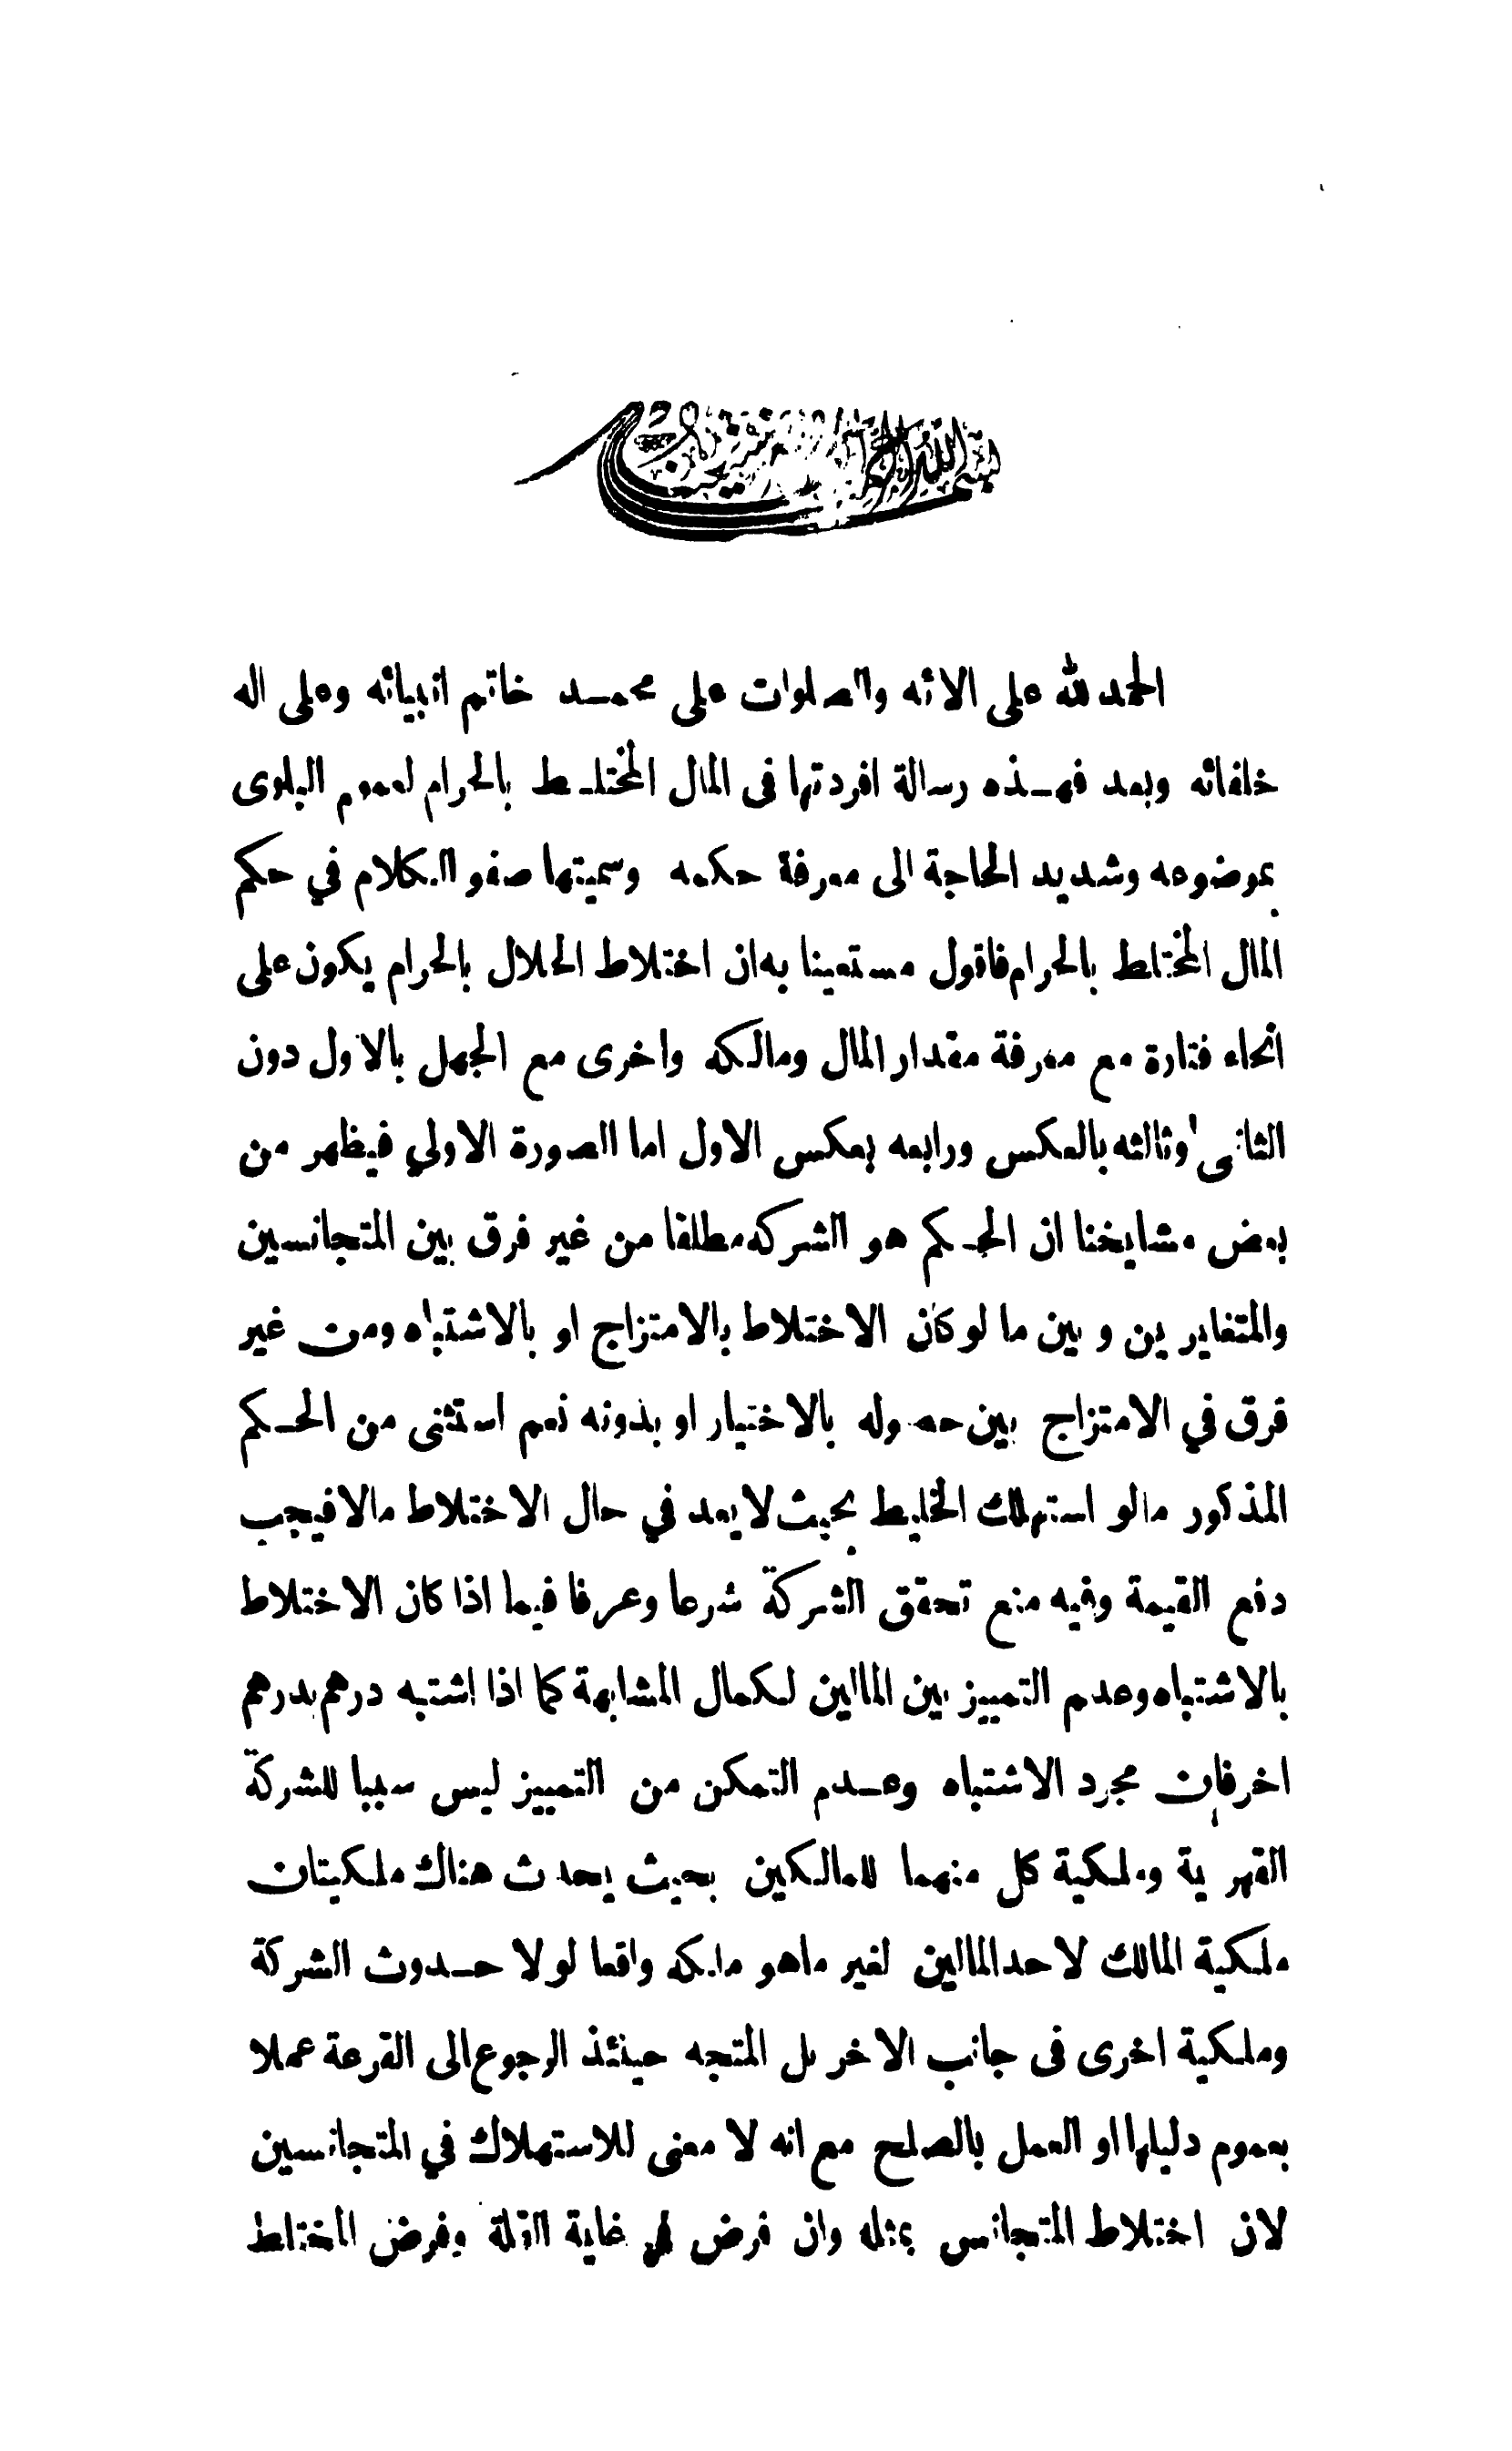 بسم الله
الحمد لله على الائه والصلوات على محمد خاتم انبيائه وعلى اله
خلفائه وبعد فهذه رسالة افردتها فى المال المختلط بالحرام لعموم البلوى
بموضوعه وشديد الحاجة الى معرفة حكمه وسميتها صفو الكلام في حكم
المال المختلط بالحرام فاقول مستعينا به ان اختلاط الحلال بالحرام يكون على
انحاء فتارة مع معرفة مقدار المال ومالكه واخرى مع الجهل بالاول دون
الثانى وثالثه بالعكس ورابعه بعكس الاول اما الصورة الاولي فيظهر من
بعض مشايخنا ان الحكم هو الشركه مطلقا من غير فرق بين المتجانسين
والمتغايرين وبين ما لو كان الاختلاط بالامتزاج او بالاشتباه ومن غير
فرق في الامتزاج بين حصوله بالاختيار او بدونه نعم استثنى من الحكم
المذكور مالو استهلك الخليط بحيث لا يعد في حال الاختلاط مالا فيجب
دفع القيمة وفيه منع تحقق الشركة شرعا وعرفا فيما اذا كان الاختلاط
بالاشتباه وعدم التمييز بين المالين لكمال المشابهة كما اذا اشتبه درهم بدرهم
اخر فان مجرد الاشتباه وعدم التمكن من التمييز ليس سببا للشركة
القهرية وملكية كل منهما للمالكين بحيث يحدث هناك ملكيتان
ملكية المالك لاحد المالين لغير ماهو مالكه واقعا لو لا حدوث الشركة
وملكية اخرى فى جانب الاخر بل المتجه حينئذ الرجوع الى القرعة عملا
بعموم دليلها او العمل بالصلح مع انه لا معنى للاستهلاك في المتجانسين
لان اختلاط المتجانس بمثله وان فرض في غاية القلة وفرض المختلط